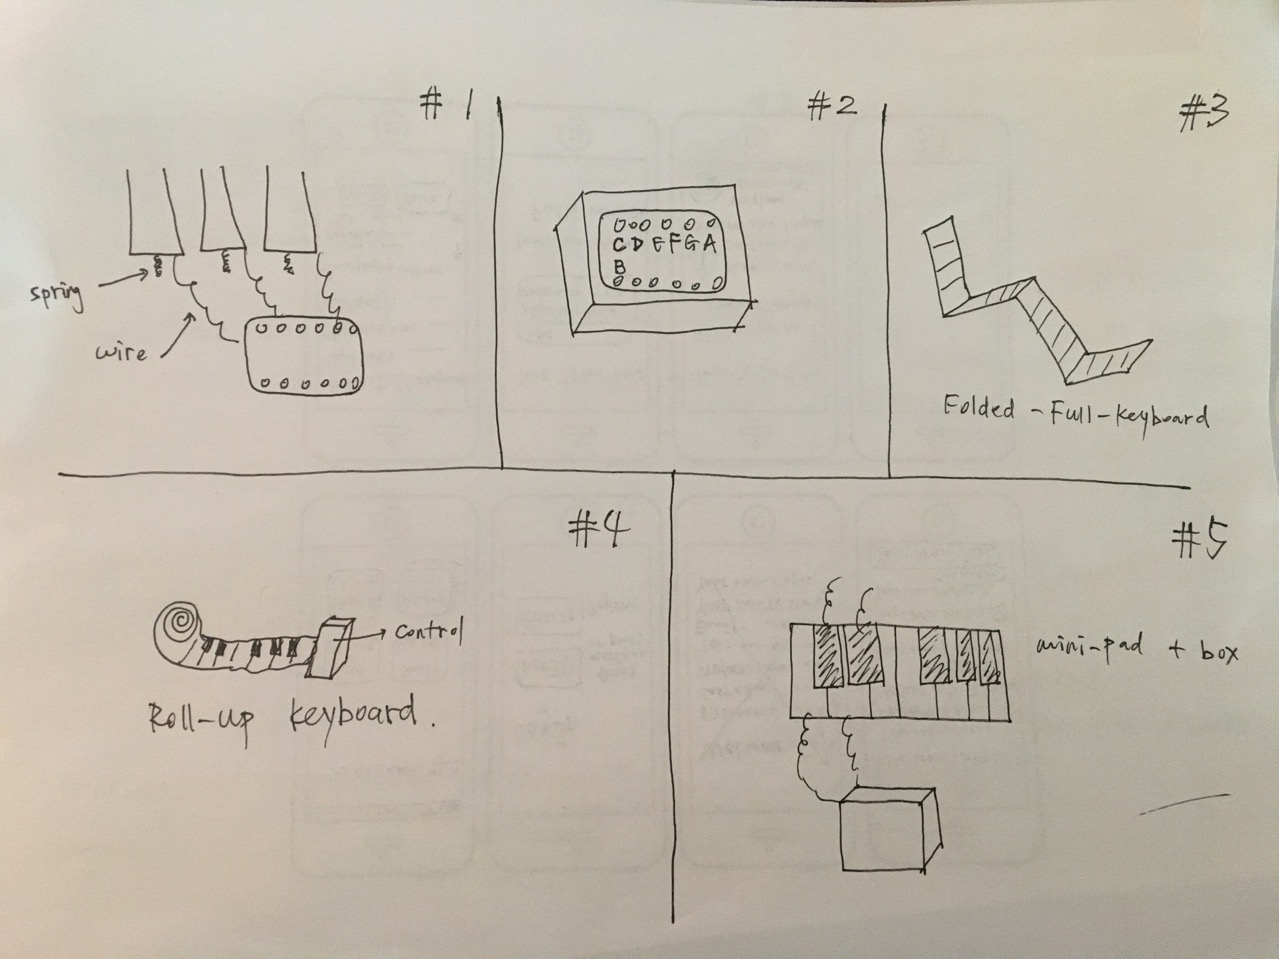 #1
spring
wire
#2
C D E F G A
B
#3
Folded - Full - keyboard
#4
control
Roll-up keyboard.
#5
mini-pad + box